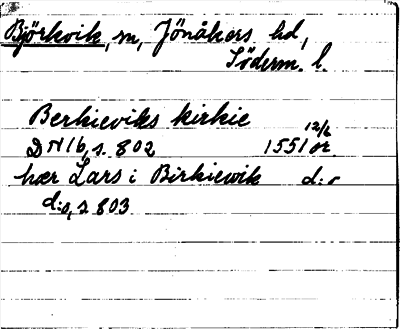 Björkvik, sn, Jönåkers hd,
Söderm. l.
Berkieviks kirkie
12/6
DN 16, s. 802 1551 or.
hær Lars i Birkiewik d:o
d:o, s 803